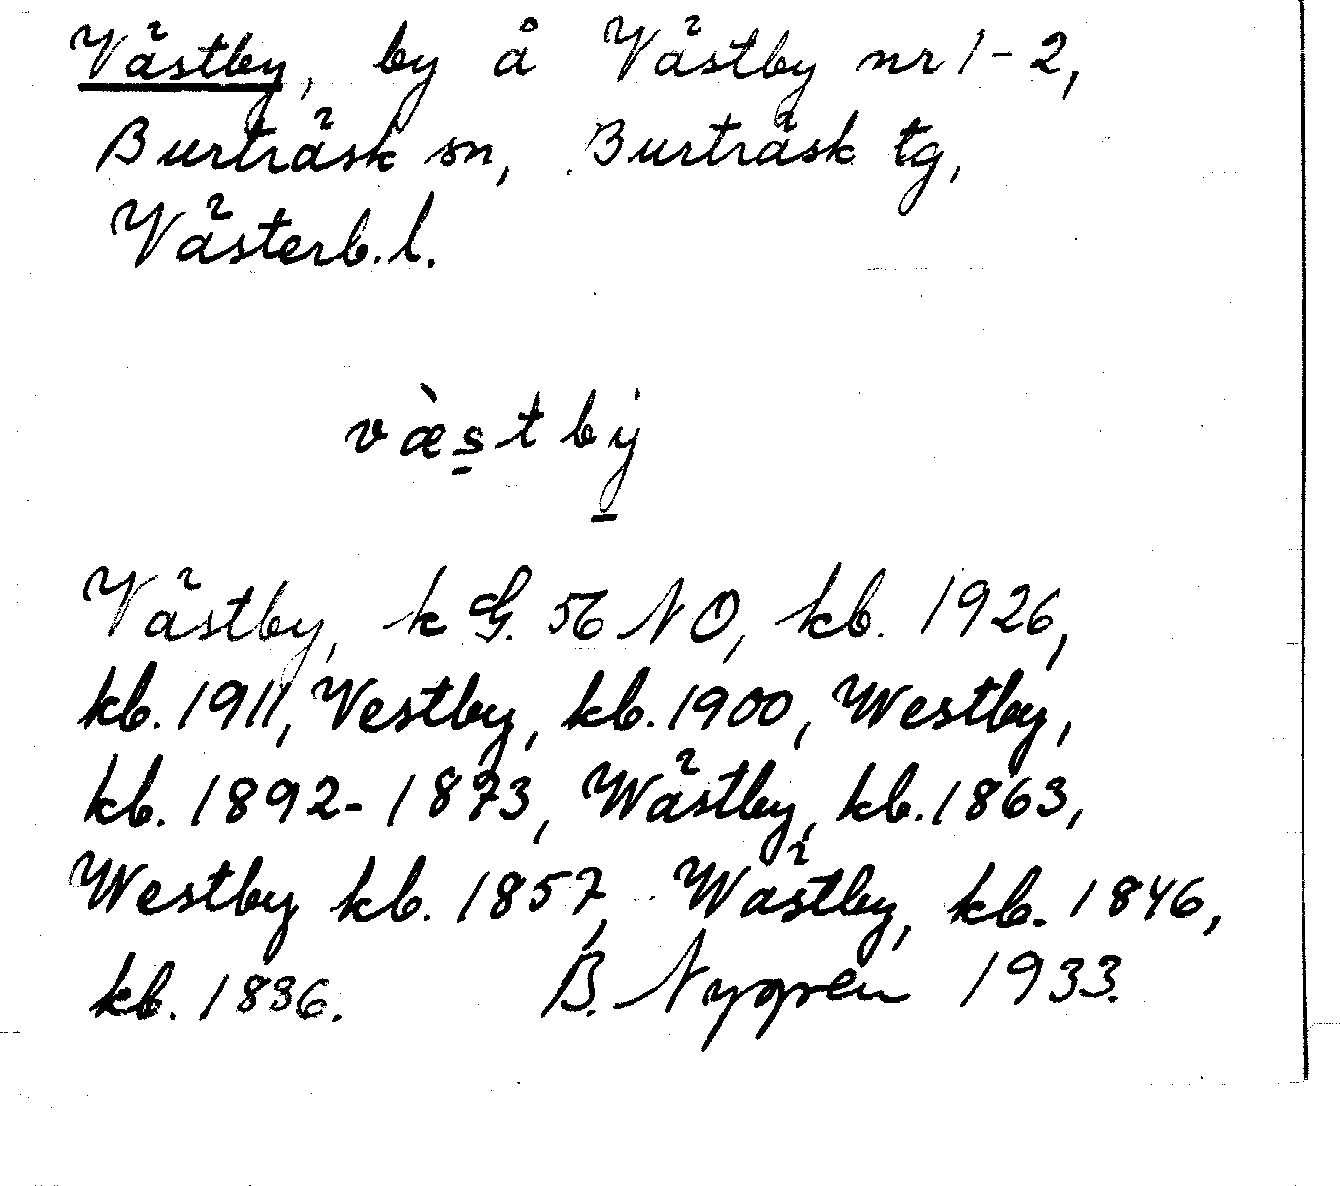 Västby, by å Västby nr 1-2,
Burträsk sn, Burträsk tg,
Västerb. l.
væ̀s̱tbẏ̱
Västby, k G. 56 NO, kb. 1926,
kb. 1911, Vestby, kb. 1900, Westby,
kb. 1892-1873, Wästby, kb. 1863,
Westby kb. 1857, Wästby, kb. 1846,
kb. 1836. B. Nygren 1933.